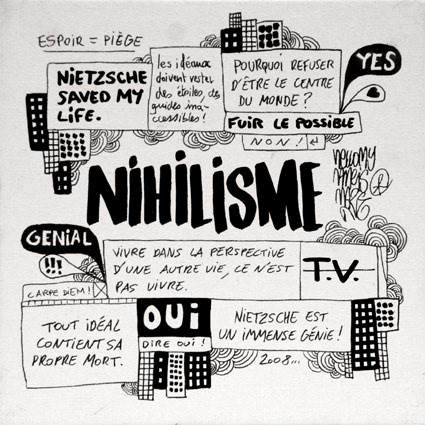 ESPOIR = PIÈGE
NiETZSCHE
SAVED MY
LiFE.
les idéaux
doivent rester
des étoiles, des
guides ina-
ccessibles !
POURQUOI REFUSER
D'ÊTRE LE CENTRE
DU MONDE ?
YES
FUiR LE POSSIBLE
NON !
NiHiLiSME
GENiAL
!!!
VIVRE DANS LA PERSPECTIVE
D'UNE AUTRE VIE, CE N'EST
PAS VIVRE.
T.V.
CARPE DIEM !
TOUT IDÉAL
CONTIENT SA
PROPRE MORT.
OUi
DIRE OUI !
NIETZSCHE EST
UN IMMENSE GÉNIE !
2008...